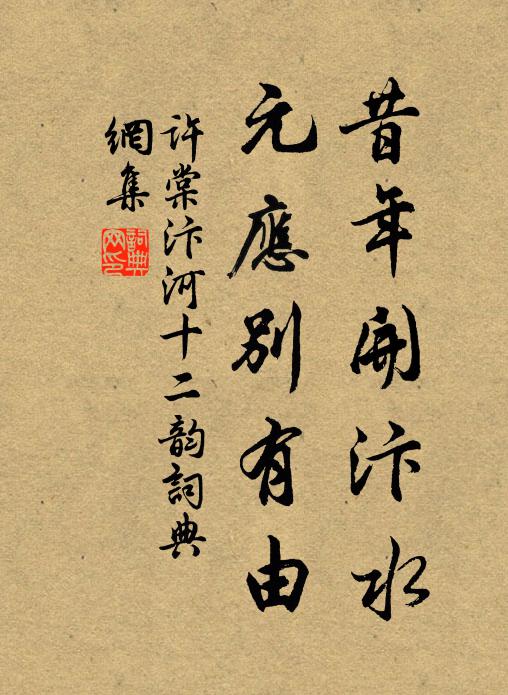 昔年開汴水
元應別有由
許棠汴河十二韵詞典
網集
詞典
网印